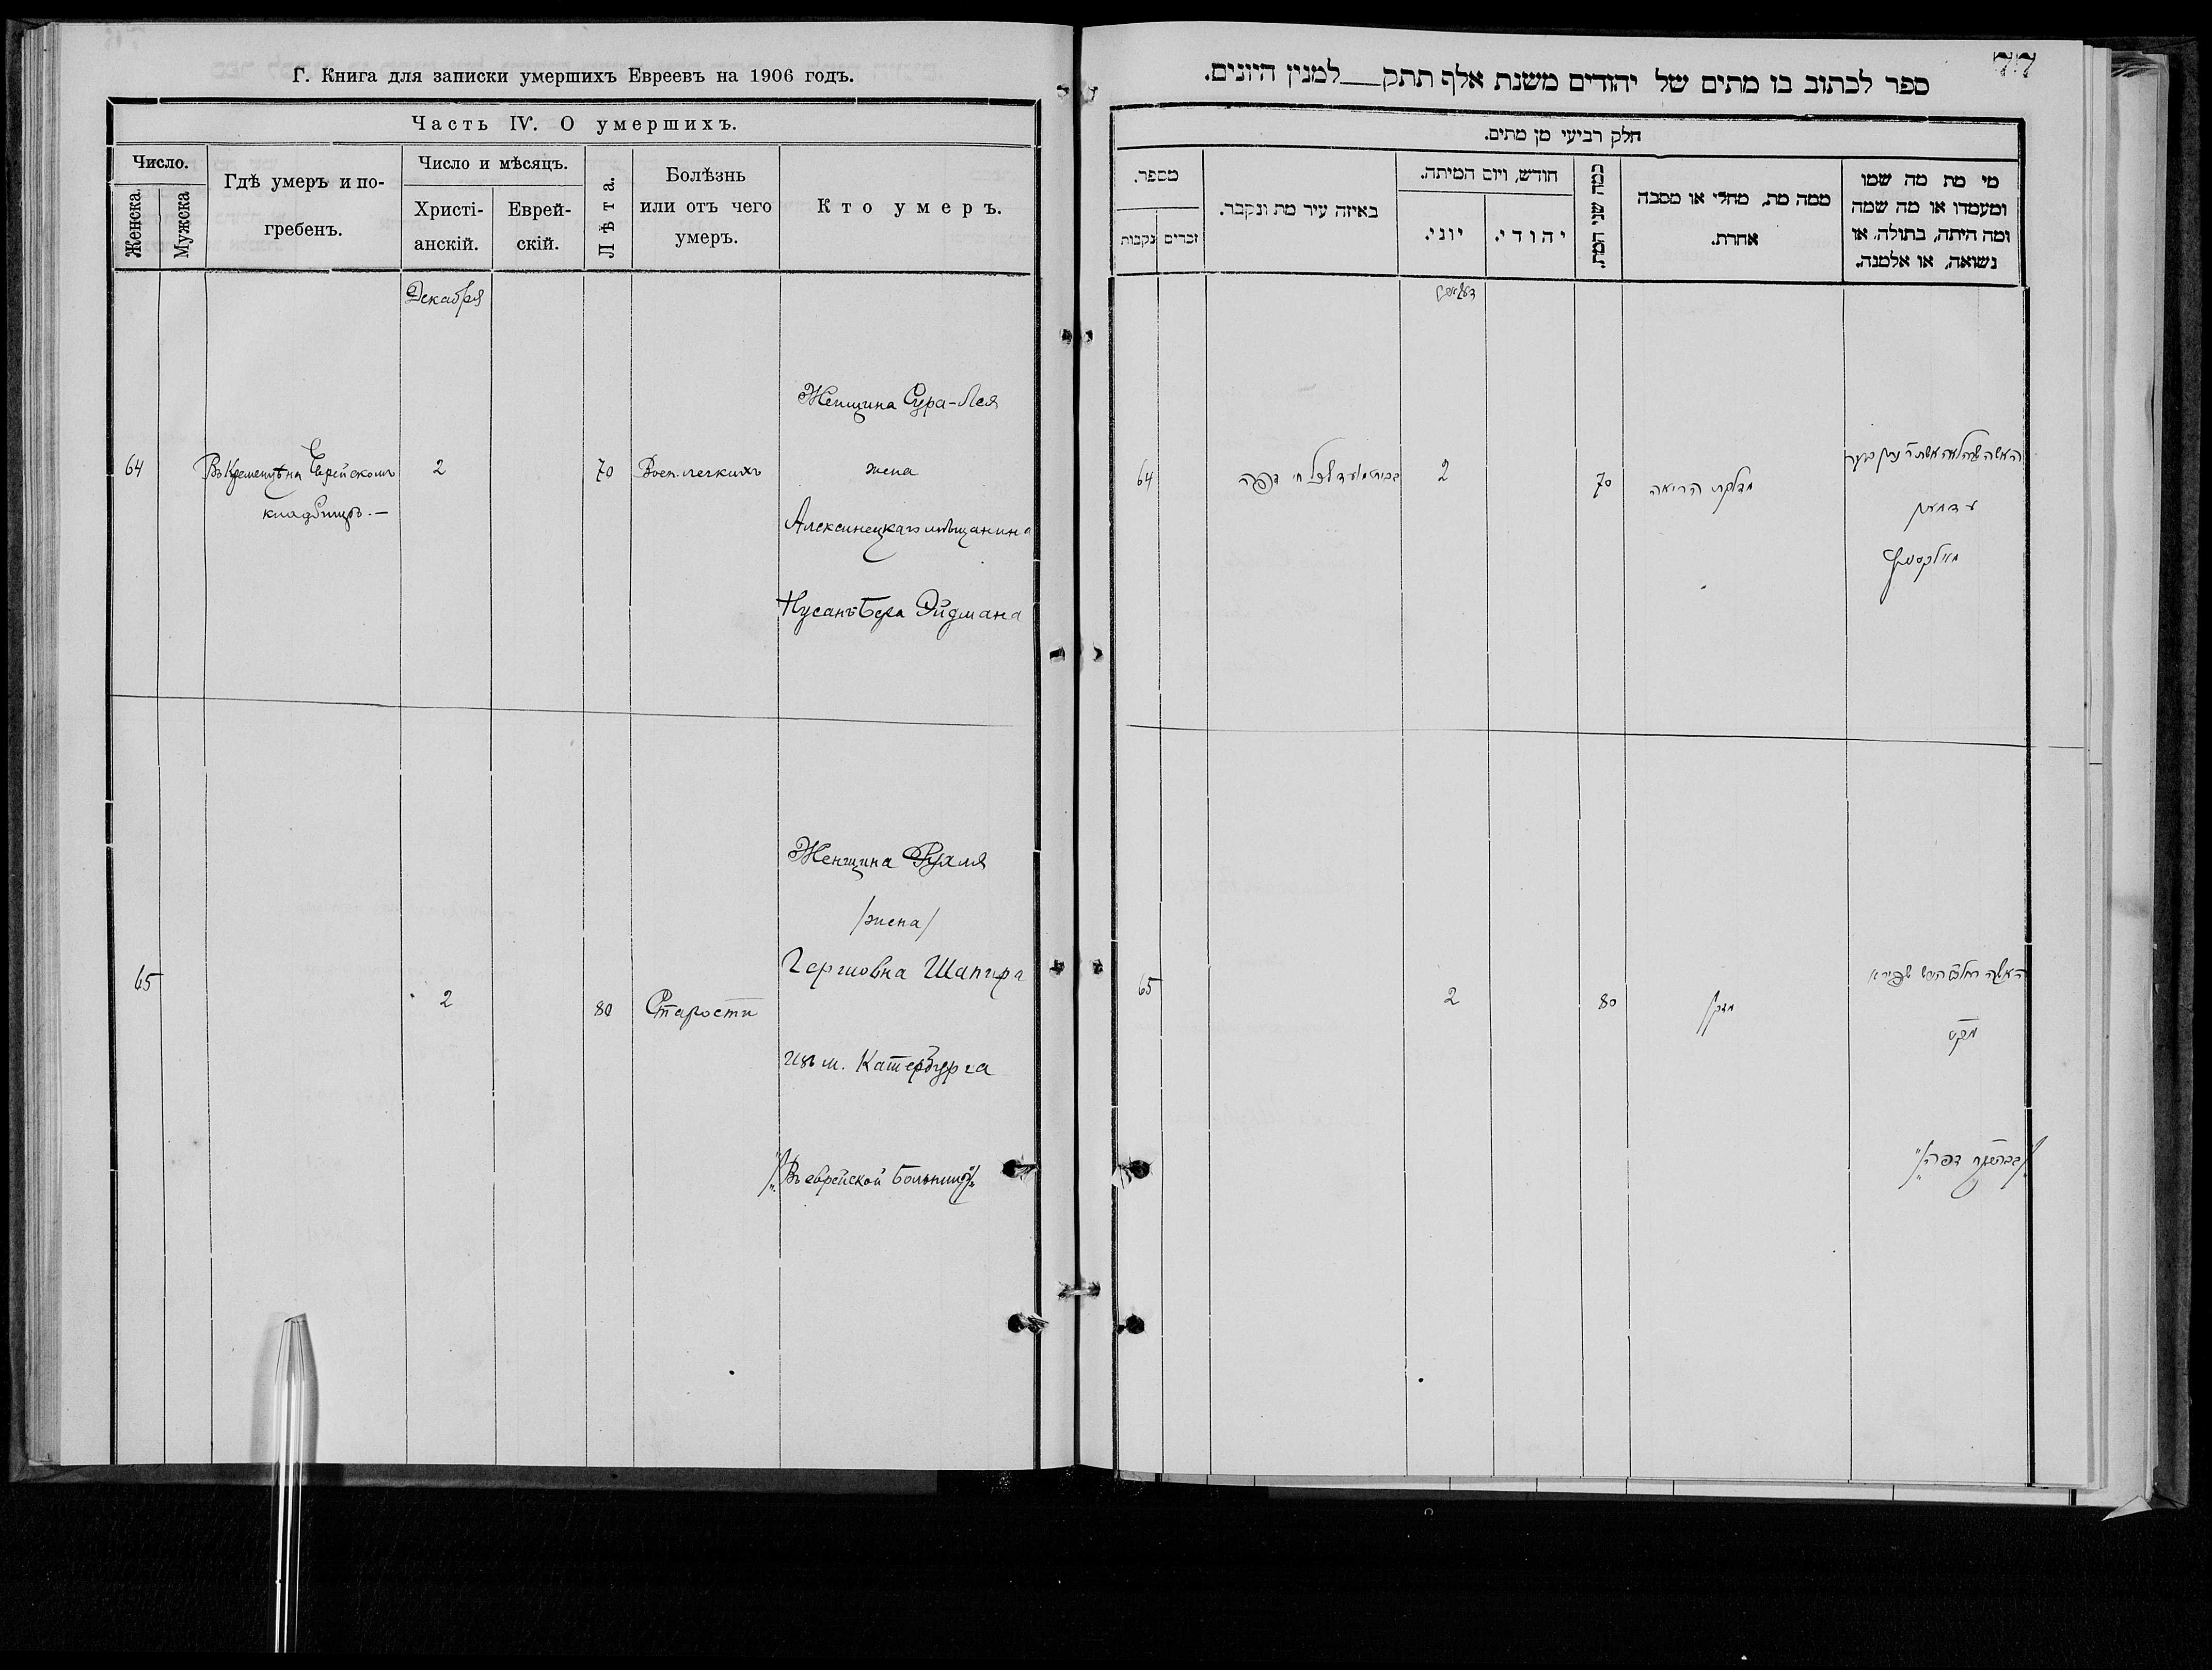 Г. Книга для записки умершихъ Евреевъ на 1906 годъ.
Часть IV. О умершихъ.
Число.
Женска.
Мужска
Гдѣ умеръ и по-
гребенъ.
Число и мѣсяцъ.
Христі-
анскій.
Еврей-
скій.
Лѣта.
Болѣзнь
или отъ чего
умеръ.
Кто умеръ.
Декабря
64
Въ Кременцѣ на Еврейскомъ
кладбищѣ.—
2
70
Восп. легкихъ
Женщина Сура-Лея
жена
Алексинецкаго мѣщанина
Нусанъ Бера Эйдмана
65
2
80
Старости
Женщина Рухля
/жена/
Гершовна Шапира
изъ м. Катербурга
Въ еврейской больницѣ
77
ספר לכתוב בו מתים של יהודים משנת אלף תתק___למנין היונים.
חלק רביעי מן מתים.
מספר.
נקבות
זכרים
באיזה עיר מת ונקבר.
חודש, ויום המיתה.
יוני.
יהודי.
כמה שני המת.
ממה מת, מחלי או מסבה
אחרת.
מי מת מה שמו
ומעמדו או מה שמה
ומה היתה, בתולה, או
נשואה, או אלמנה.
64
2
70
דלקת הריאה
65
2
80
האשה שפירא